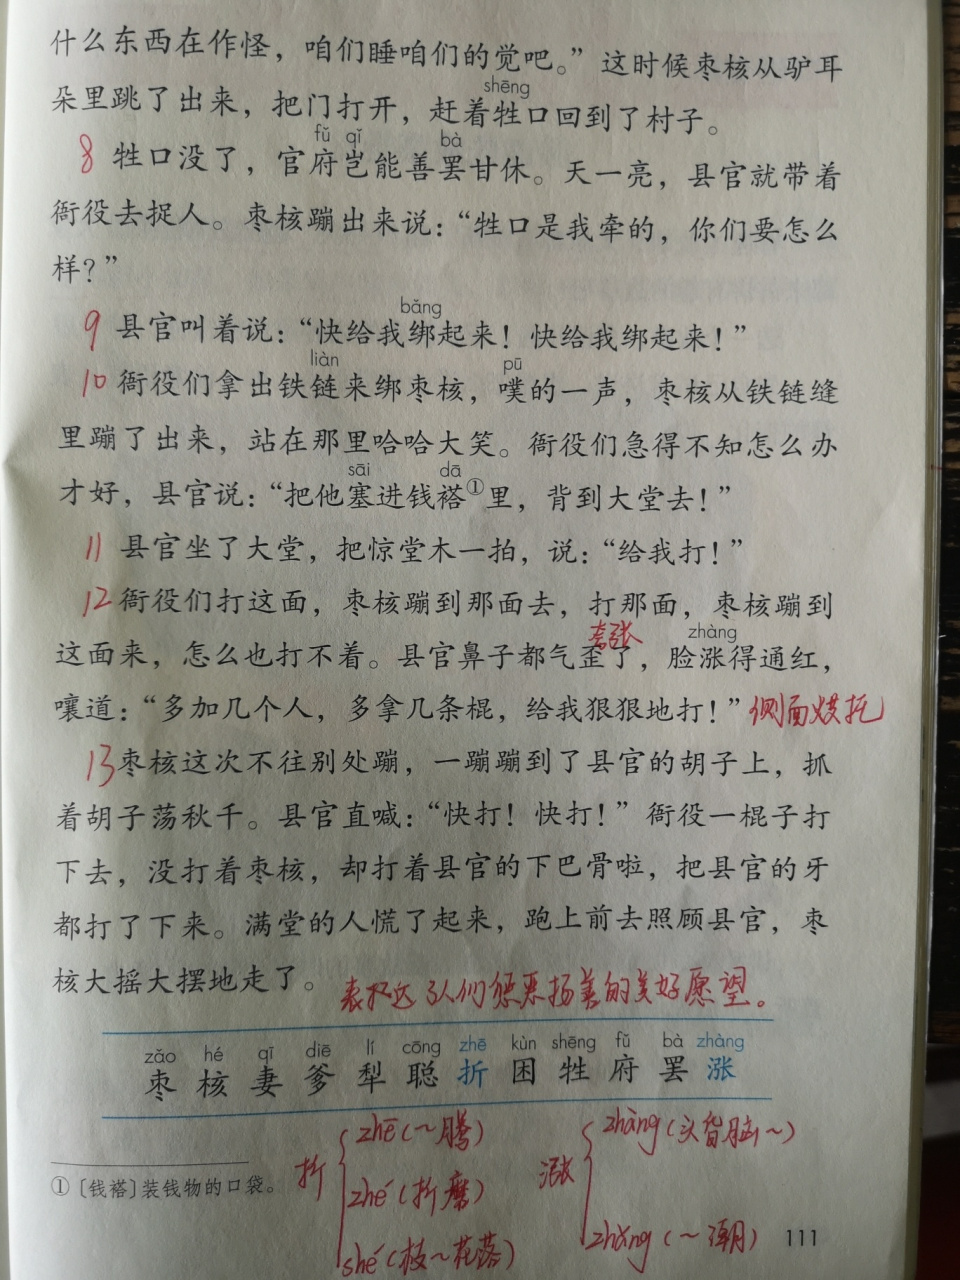 什么东西在作怪，咱们睡咱们的觉吧。”这时候枣核从驴耳
shēng
朵里跳了出来，把门打开，赶着牲口回到了村子。
fǔ qǐ bà
8 牲口没了，官府岂能善罢甘休。天一亮，县官就带着
衙役去捉人。枣核蹦出来说：“牲口是我牵的，你们要怎么
样？”
bǎng
9 县官叫着说：“快给我绑起来！快给我绑起来！”
liàn pū
10 衙役们拿出铁链来绑枣核，噗的一声，枣核从铁链缝
里蹦了出来，站在那里哈哈大笑。衙役们急得不知怎么办
sāi dā
才好，县官说：“把他塞进钱褡①里，背到大堂去！”
11 县官坐了大堂，把惊堂木一拍，说：“给我打！”
12 衙役们打这面，枣核蹦到那面去，打那面，枣核蹦到
夸张 zhàng
这面来，怎么也打不着。县官鼻子都气歪了，脸涨得通红，
嚷道：“多加几个人，多拿几条棍，给我狠狠地打！”侧面烘托
13 枣核这次不往别处蹦，一蹦蹦到了县官的胡子上，抓
着胡子荡秋千。县官直喊：“快打！快打！”衙役一棍子打
下去，没打着枣核，却打着县官的下巴骨啦，把县官的牙
都打了下来。满堂的人慌了起来，跑上前去照顾县官，枣
核大摇大摆地走了。
表达人们惩恶扬善的美好愿望。
zǎo hé qī diē lí cōng zhē kùn shēng fǔ bà zhàng
枣 核 妻 爹 犁 聪 折 困 牲 府 罢 涨
折 zhē（～腾）
zhé（折磨）
shé（枝～花落）
涨 zhàng（头昏脑～）
zhǎng（～潮）
①〔钱褡〕装钱物的口袋。
111